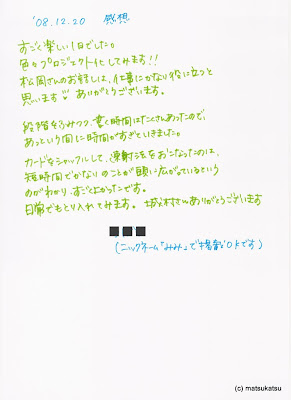 '08.12.20 感想
すごく楽しい1日でした。
色々プロジェクト化してみます!!
松岡さんのお話しは、仕事にかなり役に立つと
思います♡ ありがとうございます。
段階をふみつつ、書く時間はたくさんあったので、
あっという間に時間がすぎていきました。
カードをシャッフルして、連射法をおこなったのは、
短時間でかなりのことが頭に広がっているという
のがわかり、すごくよかったです。
日常でもとり入れてみます。城村さんありがとうございます
■■■
(ニックネーム「みみ」で掲載OKです)
(c) matsukatsu